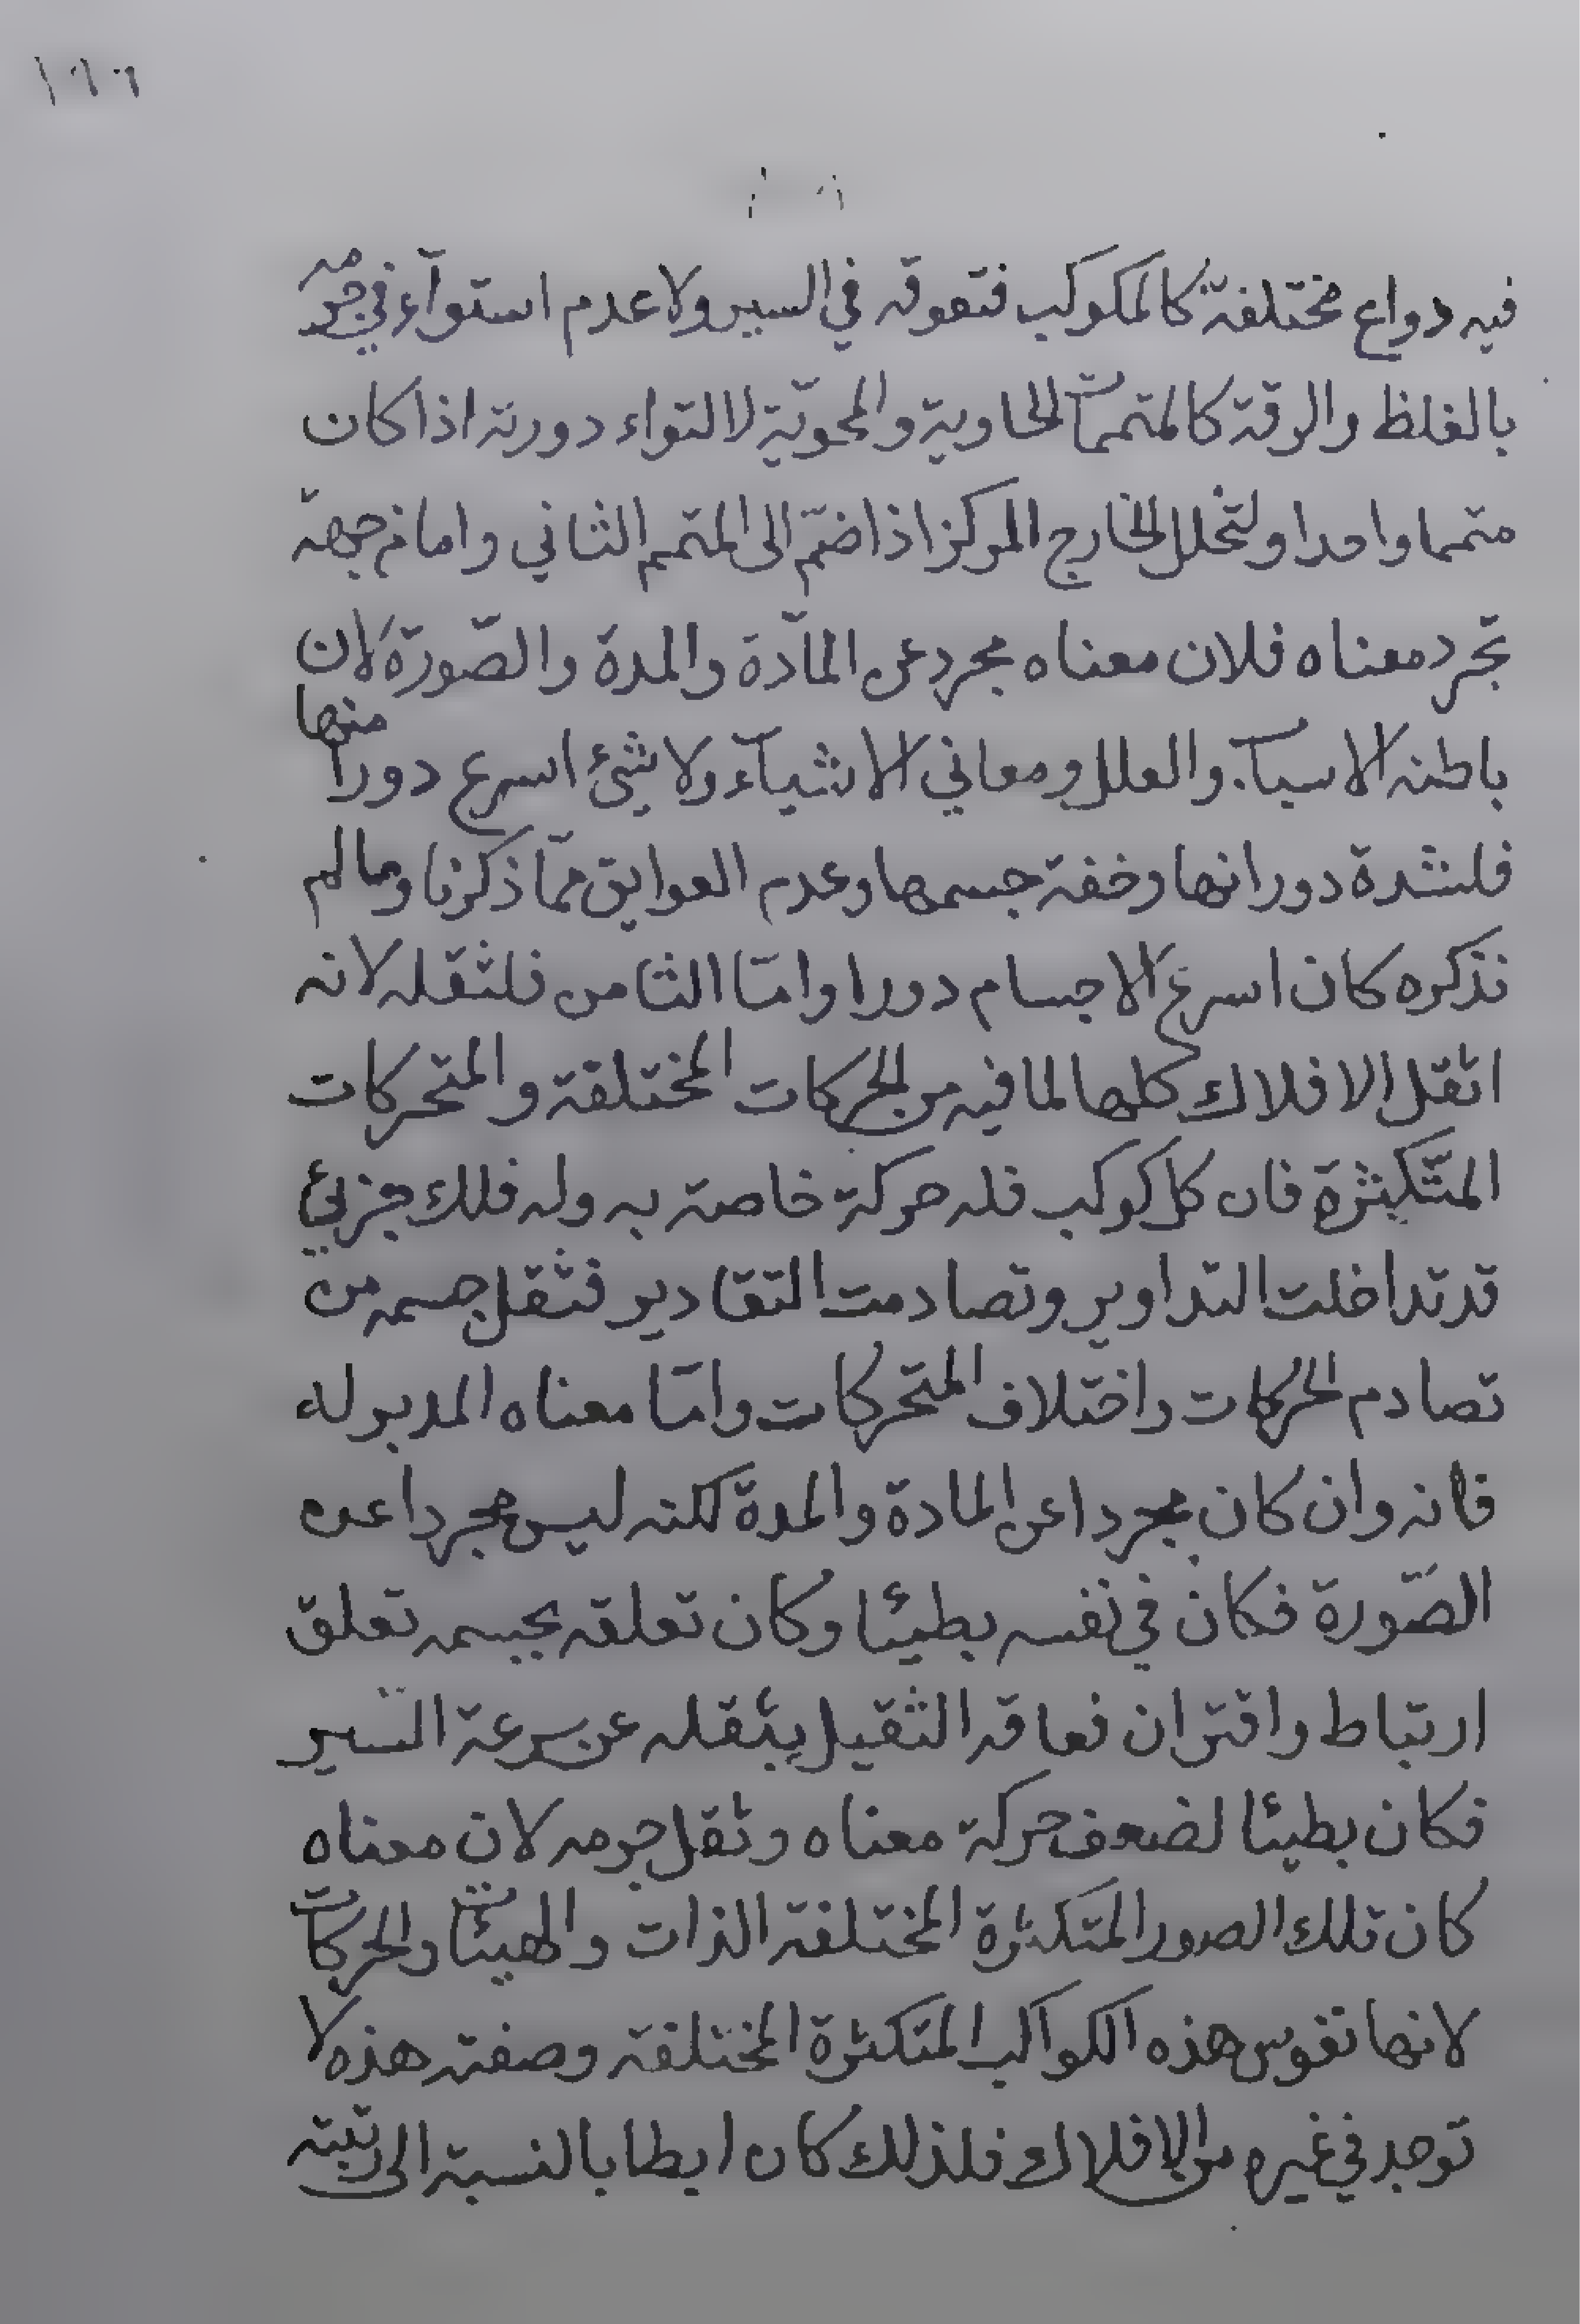 ١٦٦
فيه دواع مختلفة كالمكوكب فتعوقه في السير ولا عدم استوآء في جرمه
بالغلظ والرقة كالمتممات الحاوية والمحويّة لالتواء دورته اذا كان
متمما واحدا ولتخلل الخارج المركز اذا ضمّ الى المتمم الثاني واما من جهة
تجرد معناه فلان معناه مجرد عن المآدّة والمدة والصّورة لان
باطنه الاسباب والعلل ومعاني الاشيآء ولا شئ اسرع دورا منها
فلشدة دورانها وخفة جسمها وعدم العوايق ممّا ذكرنا ومما لم
نذكره كان اسرع الاجسام دورا وامّا الثامن فلثقله لانه
اثقل الافلاك كلها لما فيه من الحركات المختلفة والمتحركات
المتكثرة فان كل كوكب فله حركة خاصة به وله فلك جزئي
قد تداخلت التداوير وتصادمت التقادير فثقل جسمه من
تصادم الحركات واختلاف المتحركات وامّا معناه المدبر له
فانه وان كان مجردا عن المادة والمدة لكنه ليس مجردا عن
الصّورة فكان في نفسه بطيئا وكان تعلقه بجسمه تعلق
ارتباط واقتران فعاقه الثقيل بثقله عن سرعة السير
فكان بطيئا لضعف حركة معناه وثقل جرمه لان معناه
كان تلك الصور المتكثرة المختلفة الذات والهيئات والحركات
لانها نفوس هذه الكواكب المتكثرة المختلفة وصفته هذه لا
توجد في غيره من الافلاك فلذلك كان ابطا بالنسبة الى رتبته